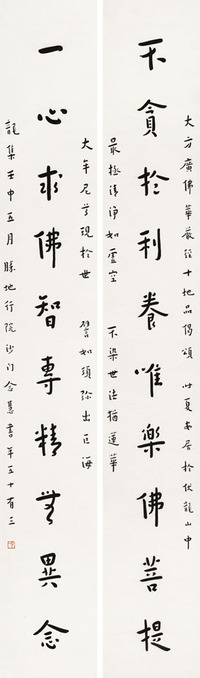 大方廣佛華嚴經十地品偈頌 時夏安居於伏龍山中
不貪於利養唯樂佛菩提
最極清淨如虛空 不染世法猶蓮華
大牟尼尊現於世 譬如須彌出巨海
一心求佛智專精無異念
龍集壬申五月勝地行院沙門念慧書年五十有三